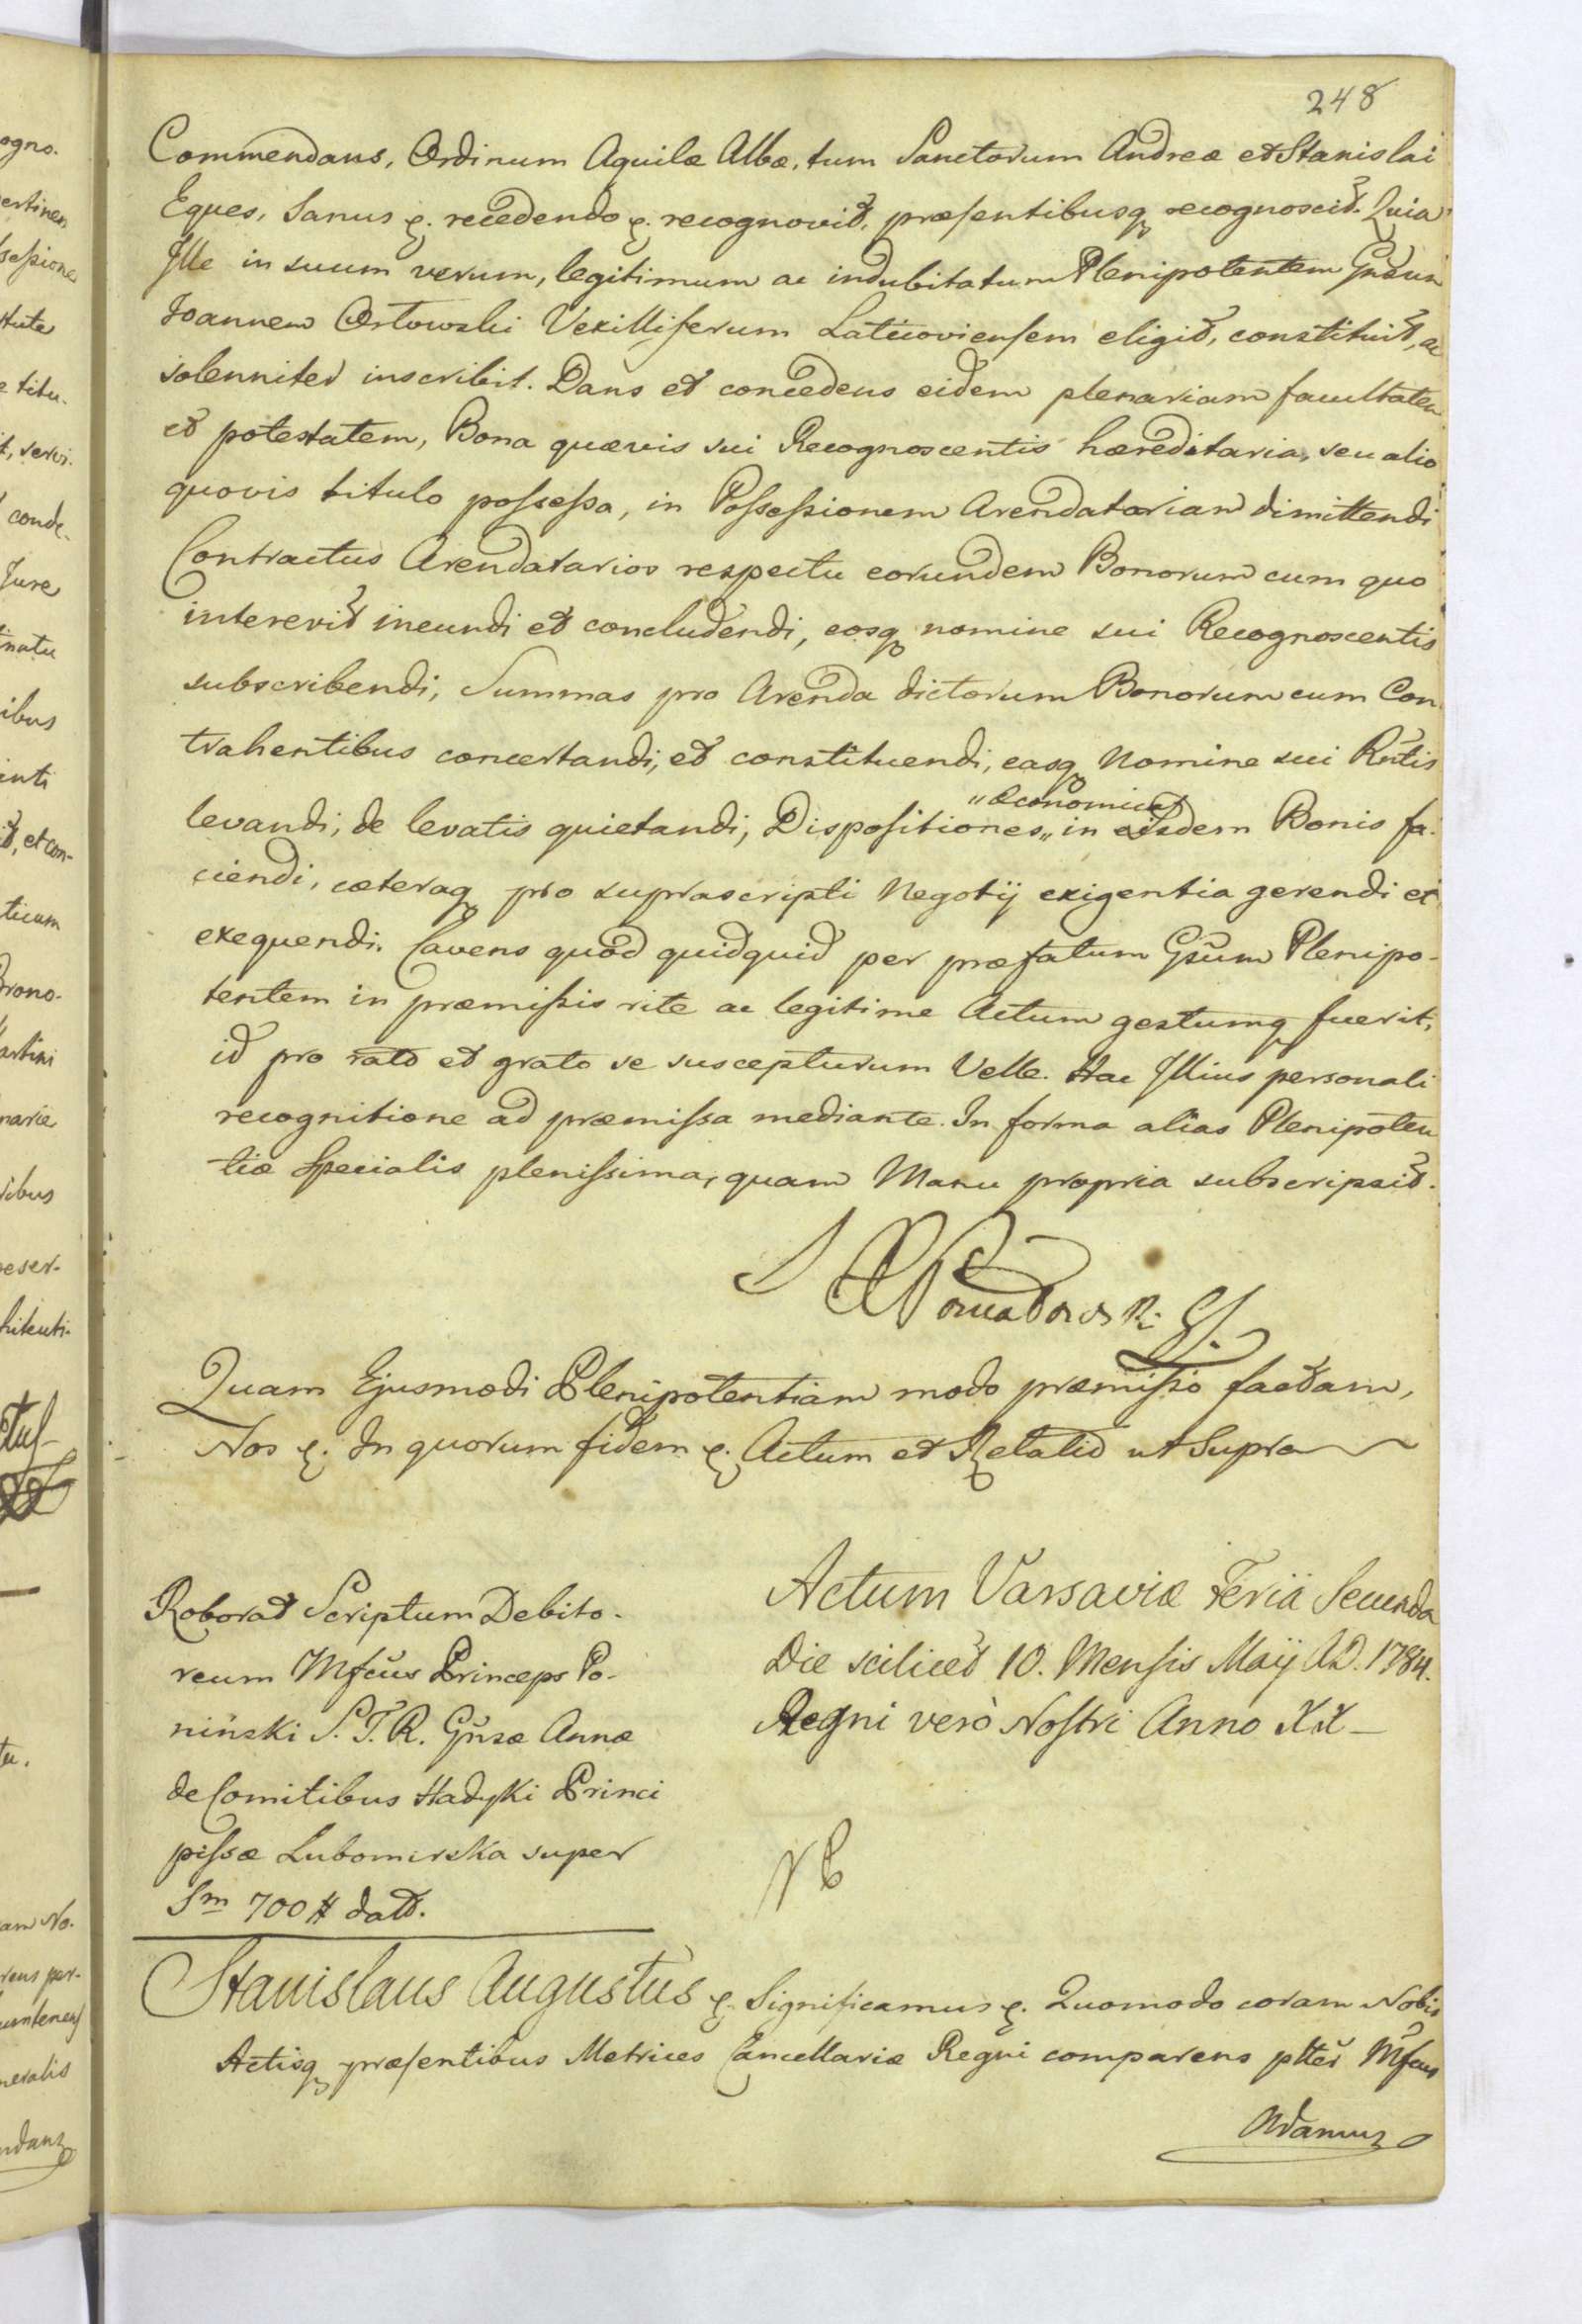 248
Commendans, Ordinum Aquilæ Albæ, tum Sanctorum Andreæ et Stanislai
Eques, Sanus &. recedendo &. recognovit, præsentibusq recognoscit. Quia
Ille in suum verum, legitimum ac indubitatum Plenipotentem Gnẽum
Joannem Orłowski Vexilliferum Laticoviensem eligit, constituit, ac
solenniter inscribit. Dans et concedens eidem plenariam facultatem
et potestatem, Bona quævis sui Recognoscentis hæreditaria, seu alio
quovis titulo possessa, in Possessionem Arendatoriam dimittendi
Contractus Arendatorios respectu eorundem Bonorum cum quo
interevit ineundi et concludendi, eosq nomine sui Recognoscentis
subscribendi, Summas pro Arenda dictorum Bonorum cum Con
trahentibus concertandi, et constituendi, easq Nomine sui Rntis
„œconomicas
levandi, de levatis quietandi, Dispositiones„ in eisdem Bonis fa.
ciendi, cæteraq pro suprascripti Negotij exigentia gerendi et
exequendi. Cavens quod quidquid per præfatum Gsum Plenipo-
tentem in præmissis rite ac legitime Actum gestumq fuerit,
id pro rato et grato se suscepturum Velle. Hac Illius personali
recognitione ad præmissa mediante. In forma alias Plenipoten
tiæ Specialis plenissima, quam Manu propria subscripsit.
Poniatowski
Quam Ejusmodi Plenipotentiam modo præmisso factam,
Nos &. In quorum fidem &. Actum et Relatio ut Supra
Roborat Scriptum Debito.
reum Mfcũs Princeps Po-
niński S. T. R. Gnsæ Annæ
de Comitibus Hadyki Princi
pissæ Lubomirska super
Sm 700 # dato.
Actum Varsaviæ Feriã Secunda
Die scilicet 10. Mensis Maij A.D. 1784.
Regni verò Nostri Anno XX –
Stanislaus Augustus &. Significamus &. Quomodo coram Nobis
Actisq præsentibus Metrices Cancellariæ Regni comparens pltẽr Mfcus
Adamus